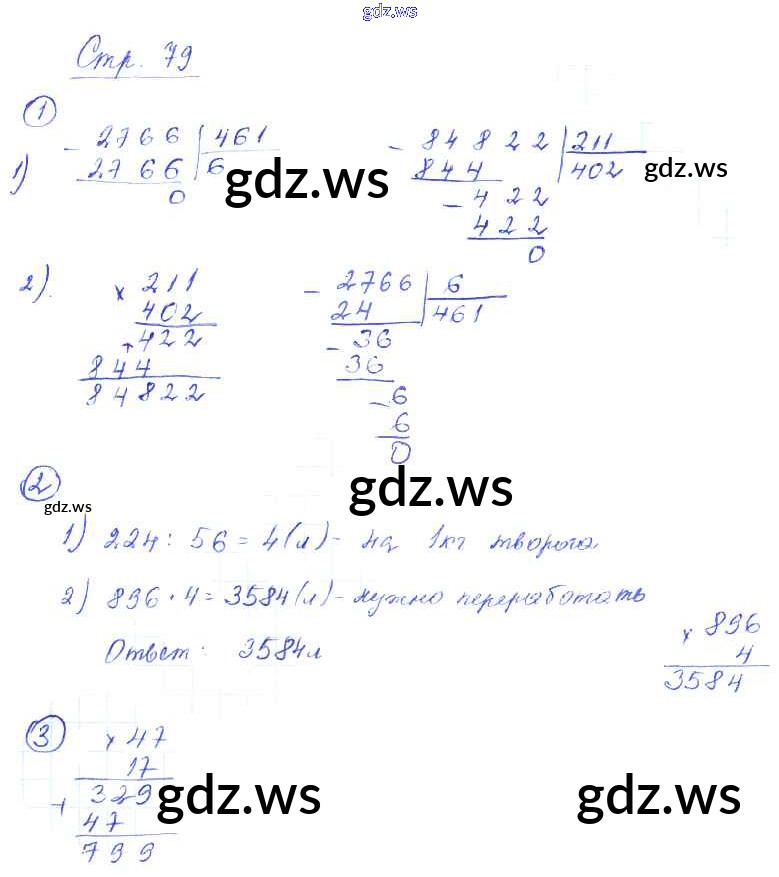 gdz.ws
Стр. 79
1
1) - 2766 | 461
2766 6
0
- 84822 | 211
844 402
- 422
422
0
gdz.ws
gdz.ws
2). × 211
402
+ 422
844
84822
- 2766 | 6
24 461
- 36
36
- 6
6
0
gdz.ws
2
gdz.ws
1) 224 : 56 = 4(л) - на 1кг творога
2) 896 · 4 = 3584(л) - нужно переработать
Ответ: 3584л
× 896
4
3584
3
× 47
17
+ 329
47
799
gdz.ws
gdz.ws